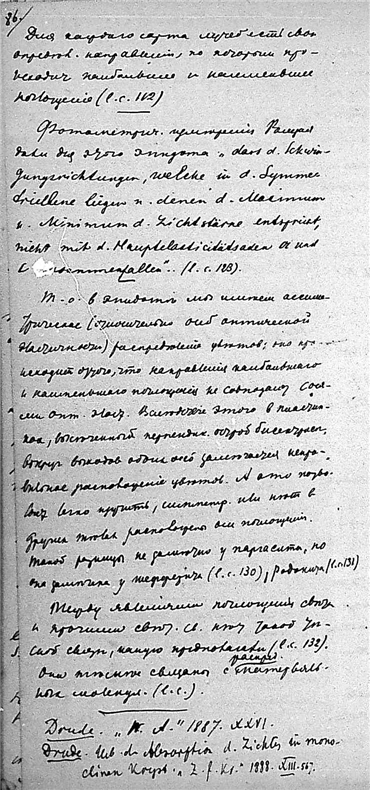 86/
Для каждаго сорта лучей есть свои
определ. направленія, по которым про-
исходит наибольшее и наименьшее
поглощеніе (l.c. 112)
Фотометрич. измеренія Рамзая
дали для этого эпидота „dass d. Schwin-
gungsrichtungen, welche in d. Symme-
liegen u. denen d. Maximum
u. Minimum d. Lichtstärke entspricht,
nicht mit d. Hauptelasticitätsaxen a und
c zusammenfallen". (l.c. 123).
Т.о. в эпидоте мы имеем ассиме-
трическое (относительно осей оптической
эластичности) распределеніе цветов; оно про-
исходит оттого, что направленія наибольшаго
и наименьшаго поглощенія не совпадают с ося-
ми опт. эласт. Вследствіе этого в пластин-
ках, выточенных перпендик. острой биссектрисе,
вокруг выходов обеих осей замечается непра-
вильное расположеніе цветов. А это позво-
ляет легко изучить, симметр. или нет в
других телах расположены оси поглощенія.
Такой разницы не замечено у паргасита, но
она замечена у (l.c. 130), (l.c. 131)
Между явленіями поглощенія света
и прочими свет. св. нет такой тес-
ной связи, какую предполагали (l.c. 132).
Они тесно связаны с распред. матерьяль-
ных молекул. (l.c.).
Drude. „W. A." 1887. XXXI.
Drude. Ueb. d. Absorption d. Lichtes in mono-
clinen Kryst. „Z. f. Kr." 1888. XIII. 567.